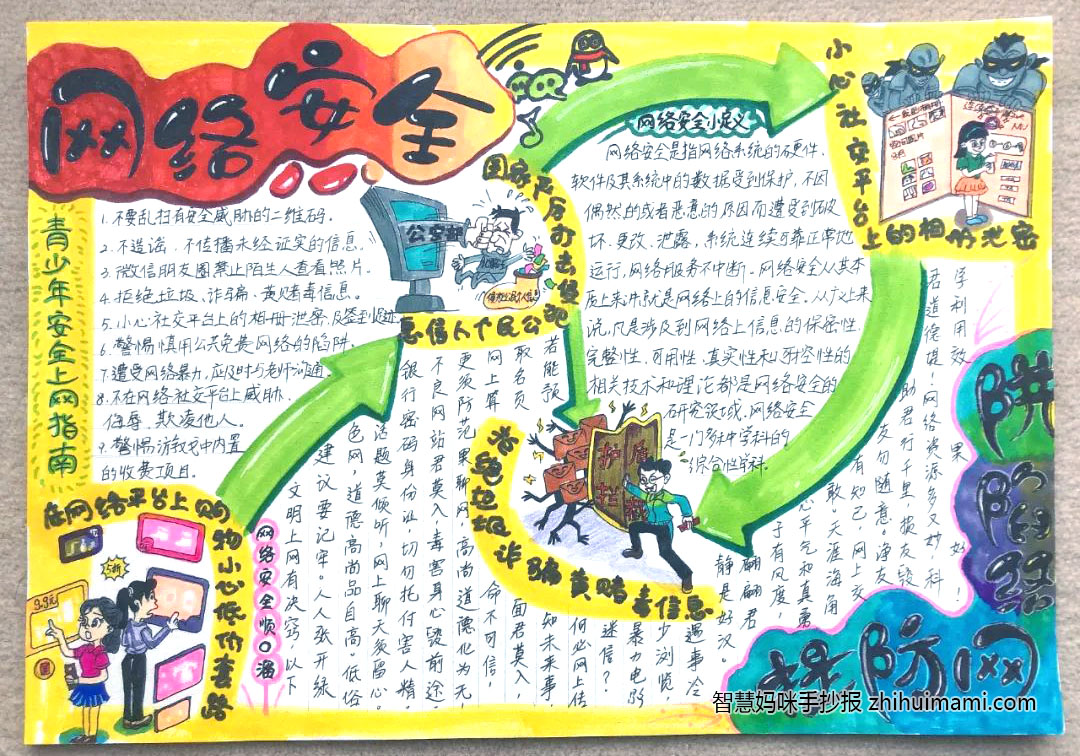 网络安全
青少年安全上网指南
1.不要乱扫有安全威胁的二维码.
2.不造谣、不传播未经证实的信息。
3.微信朋友圈禁止陌生人查看照片.
4.拒绝垃圾、诈骗、黄赌毒信息。
5.小心社交平台上的相册泄密及签到
6.警惕慎用公共免费网络的陷阱.
7.遭受网络暴力,应及时与老师沟通
8.不在网络社交平台上威胁、
侮辱、欺凌他人。
9.警惕游戏中内置
的收费项目.
公安部
国家严厉打击
息信人个民公
网络安全小定义
网络安全是指网络系统的硬件、
软件及其系统中的数据受到保护,不因
偶然的或者恶意的原因而遭受到破
坏、更改、泄露,系统连续可靠正常地
运行,网络服务不中断。网络安全从其本
质上来讲就是网络上的信息安全。从广义上来
说,凡是涉及到网络上信息的保密性、
完整性、可用性、真实性和可控性的
相关技术和理论都是网络安全的
研究领域.网络安全
是一门多种学科的
综合性学科.
小心社交平台上的相册泄密
在网络平台上购物小心低价套路
5折
9.9元
网络安全顺口溜
文明上网有决窍,以下
建议要记牢。人人张开绿
色网,道德高尚品自高。低俗
话题莫倾听,网上聊天须留心。
银行密码身份证,切勿托付害人精。
不良网站君莫入,毒害身心毁前途。
更须防范黄
网上算
命不可信,
若能预
知未来事,
何必网上传
迷信?
暴力电影
少浏览,
遇事冷
静是好汉。
翩翩君
子有风度,
心平气和真勇
敢。天涯海角
有知己,网上交
友勿随意。净友
助君行千里,损友
君道德提!网络资源多又妙,科
学利用效果好!
拒绝垃圾诈骗黄赌毒信息
谨防网
络陷阱
智慧妈咪手抄报 zhihuimami.com